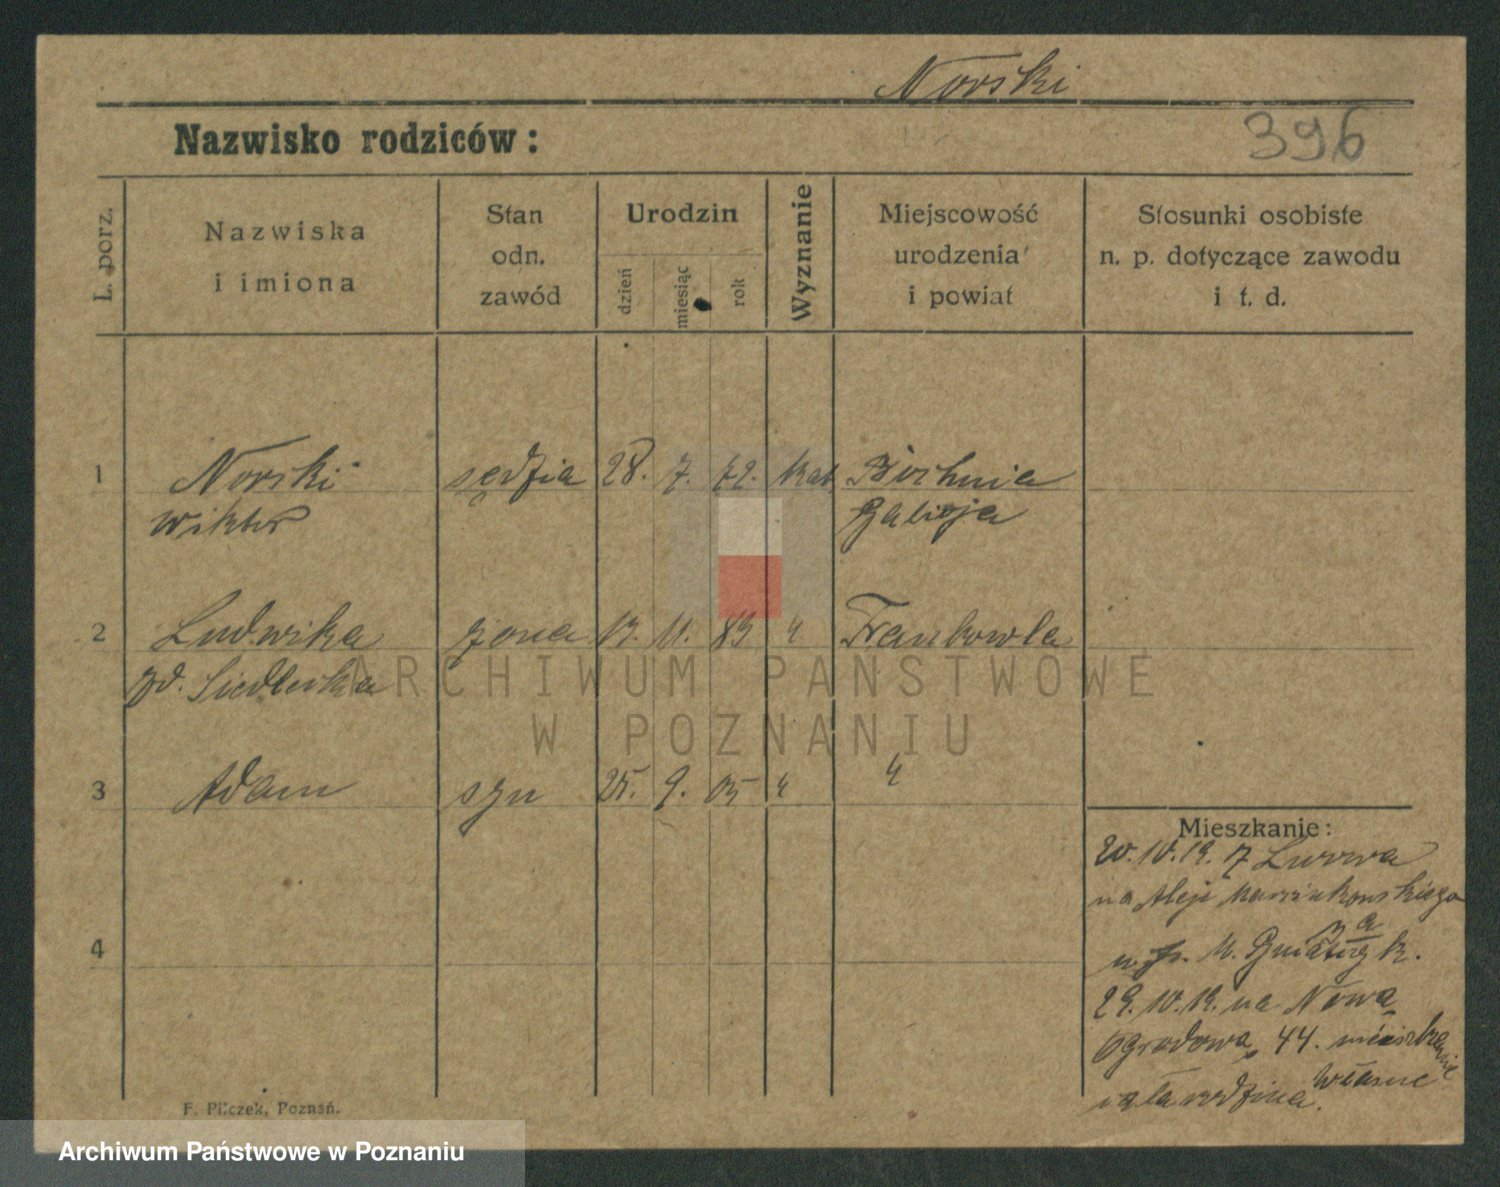 Norski
Nazwisko rodziców:
396
L. porz.
Nazwiska
i imiona
Stan
odn.
zawód
Urodzin
dzień
miesiąc
rok
Wyznanie
Miejscowość
urodzenia
i powiat
Stosunki osobiste
n. p. dotyczące zawodu
i t. d.
1 Norski sędzia 28. 7. 72. kat. Bochnia
Wiktor Galicja
2 Ludwika żona 13. 11. 83 " Trembowla
zd. Siedlecka
ARCHIWUM PAŃSTWOWE
W POZNANIU
3 Adam syn 25. 9. 05 " "
Mieszkanie:
20.10.19. z Lwowa
na Aleje Marcinkowskiego
4
29.10.19. na Nową
Ogrodową 44. mieszkanie
własne
cała rodzina.
F. Pilczek, Poznań.
Archiwum Państwowe w Poznaniu